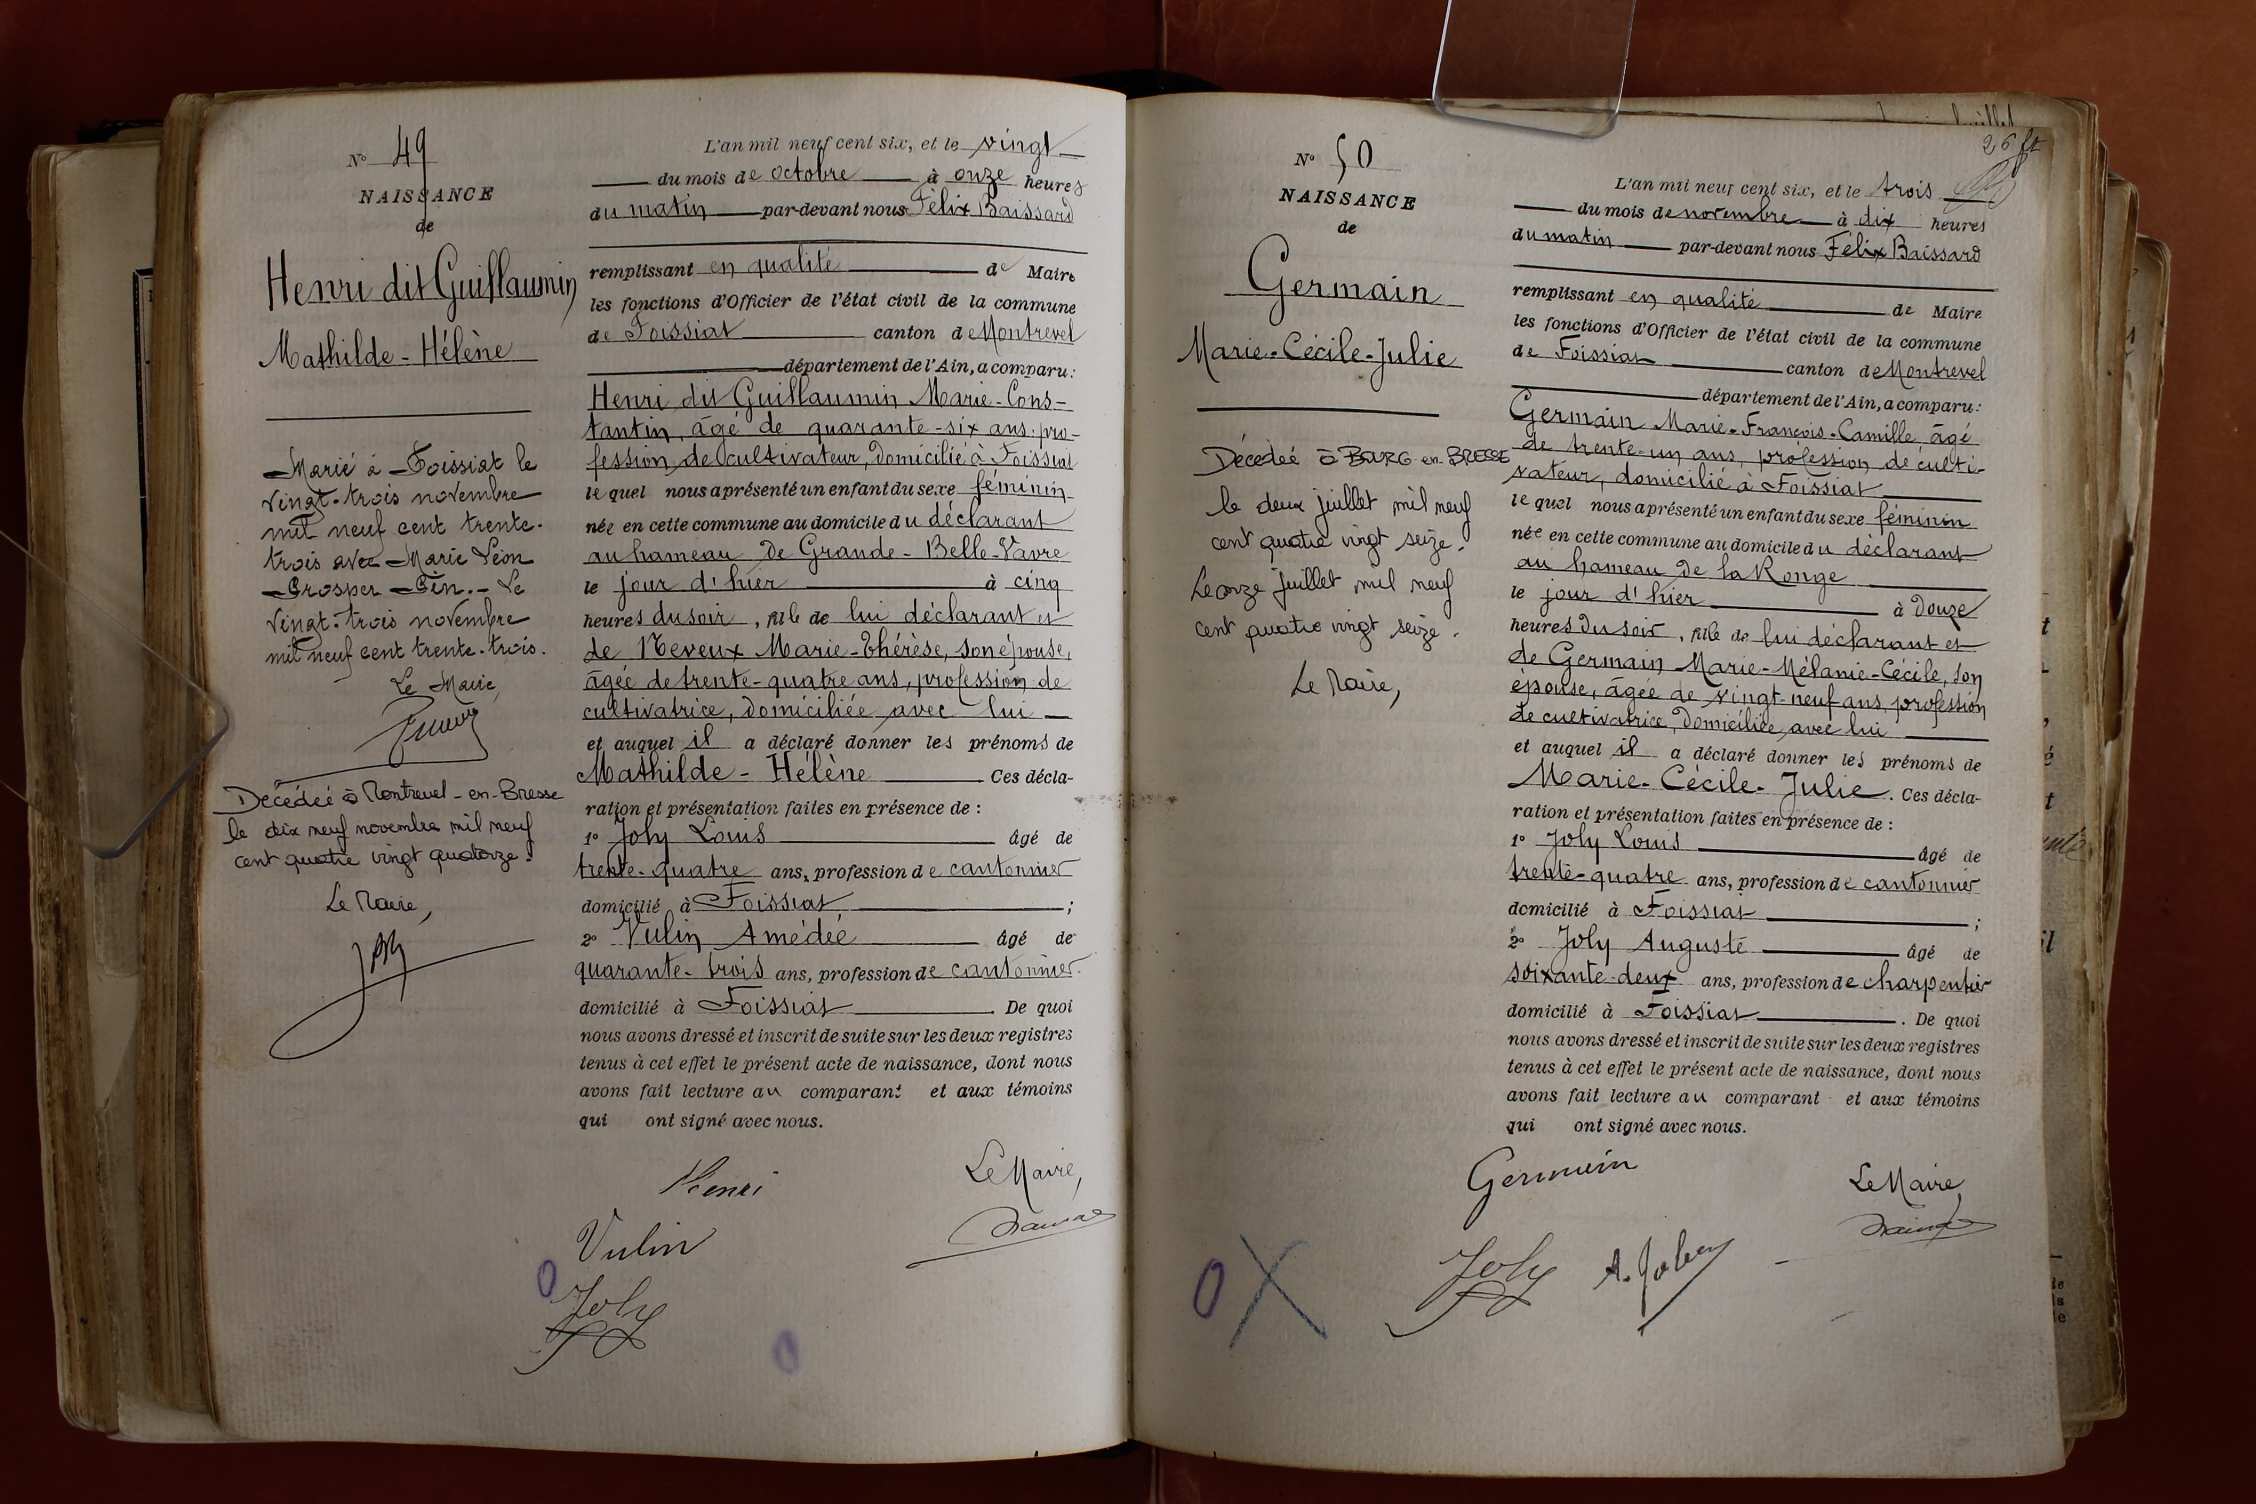 N° 49
NAISSANCE
de
Henri dit Guillaumin
Mathilde-Hélène
Marié à Foissiat le
vingt-trois novembre
mil neuf cent trente-
trois avec Marie Léon
Prosper Pin.- Le
vingt-trois novembre
mil neuf cent trente-trois.
Le Maire,
Décédée à Montrevel-en-Bresse
le dix neuf novembre mil neuf
cent quatre vingt quatorze.
Le Maire,
L'an mil neuf cent six, et le vingt
du mois de octobre à onze heures
du matin par-devant nous Félix Baissard
remplissant en qualité de Maire
les fonctions d'Officier de l'état civil de la commune
de Foissiat canton de Montrevel
département de l'Ain, a comparu:
Henri dit Guillaumin Marie-Cons-
tantin, âgé de quarante-six ans, pro-
fession de cultivateur, domicilié à Foissiat
lequel nous a présenté un enfant du sexe féminin
née en cette commune au domicile du déclarant
au hameau de Grande-Belle-Vavre
le jour d'hier à cinq
heures du soir, fille de lui déclarant et
de Neveux Marie-Thérèse, son épouse,
âgée de trente-quatre ans, profession de
cultivatrice, domiciliée avec lui
et auquel il a déclaré donner les prénoms de
Mathilde-Hélène Ces décla-
ration et présentation faites en présence de :
1° Joly Louis âgé de
trente-quatre ans, profession de cantonnier
domicilié à Foissiat ;
2° Vulin Amédée âgé de
quarante-trois ans, profession de cantonnier
domicilié à Foissiat. De quoi
nous avons dressé et inscrit de suite sur les deux registres
tenus à cet effet le présent acte de naissance, dont nous
avons fait lecture au comparant et aux témoins
qui ont signé avec nous.
Henri
Le Maire,
Vulin
Joly
26 ft
N° 50
NAISSANCE
de
Germain
Marie-Cécile-Julie
Décédée à BOURG-en-BRESSE
le deux juillet mil neuf
cent quatre vingt seize.
Le onze juillet mil neuf
cent quatre vingt seize.
Le Maire,
L'an mil neuf cent six, et le trois
du mois de novembre à dix heures
du matin par-devant nous Félix Baissard
remplissant en qualité de Maire
les fonctions d'Officier de l'état civil de la commune
de Foissiat canton de Montrevel
département de l'Ain, a comparu:
Germain Marie-François-Camille âgé
de trente-un ans, profession de culti-
vateur, domicilié à Foissiat
lequel nous a présenté un enfant du sexe féminin
née en cette commune au domicile du déclarant
au hameau de la Ronge
le jour d'hier à douze
heures du soir, fille de lui déclarant et
de Germain Marie-Mélanie-Cécile, son
épouse, âgée de vingt-neuf ans, profession
de cultivatrice, domiciliée avec lui
et auquel il a déclaré donner les prénoms de
Marie-Cécile-Julie. Ces décla-
ration et présentation faites en présence de :
1° Joly Louis âgé de
trente-quatre ans, profession de cantonnier
domicilié à Foissiat ;
2° Joly Auguste âgé de
soixante-deux ans, profession de charpentier
domicilié à Foissiat. De quoi
nous avons dressé et inscrit de suite sur les deux registres
tenus à cet effet le présent acte de naissance, dont nous
avons fait lecture au comparant et aux témoins
qui ont signé avec nous.
Germain
Le Maire,
Joly A. Joly